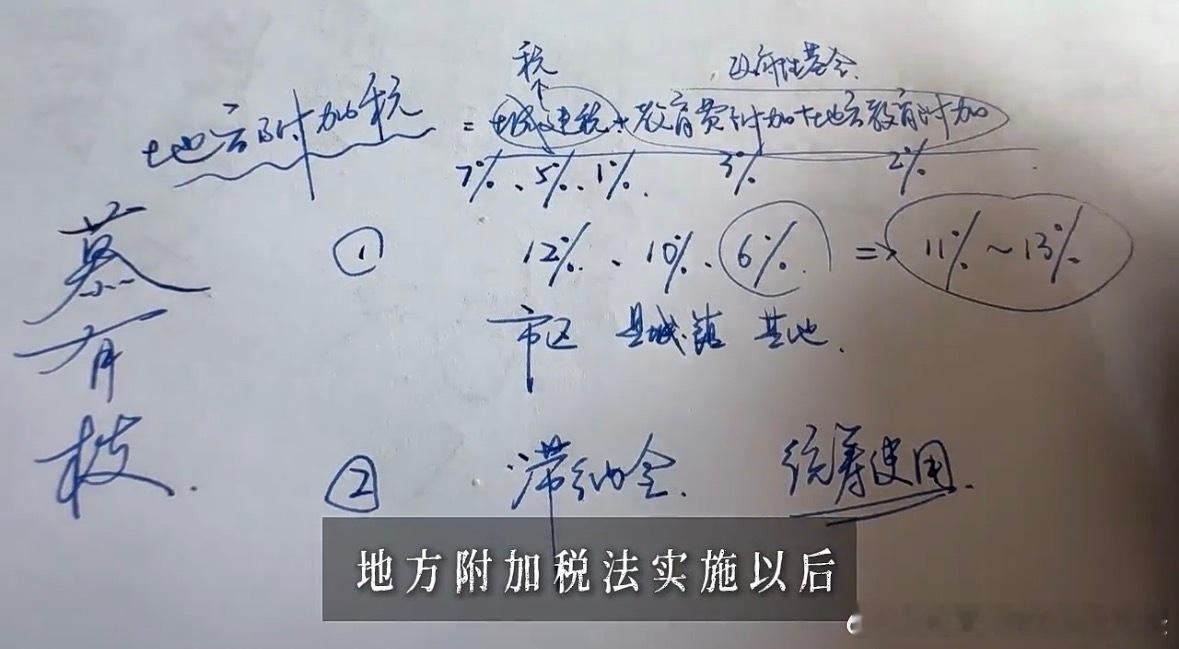 税 政府性基金
地方附加税 = 城建税+教育费附加+地方教育附加
7%、5%、1%. 3% 2%
① 12%、10%、6%. => 11%~13%
市区 县城.镇 其他.
慕有枝.
② 滞纳金. 统筹使用.
地方附加税法实施以后